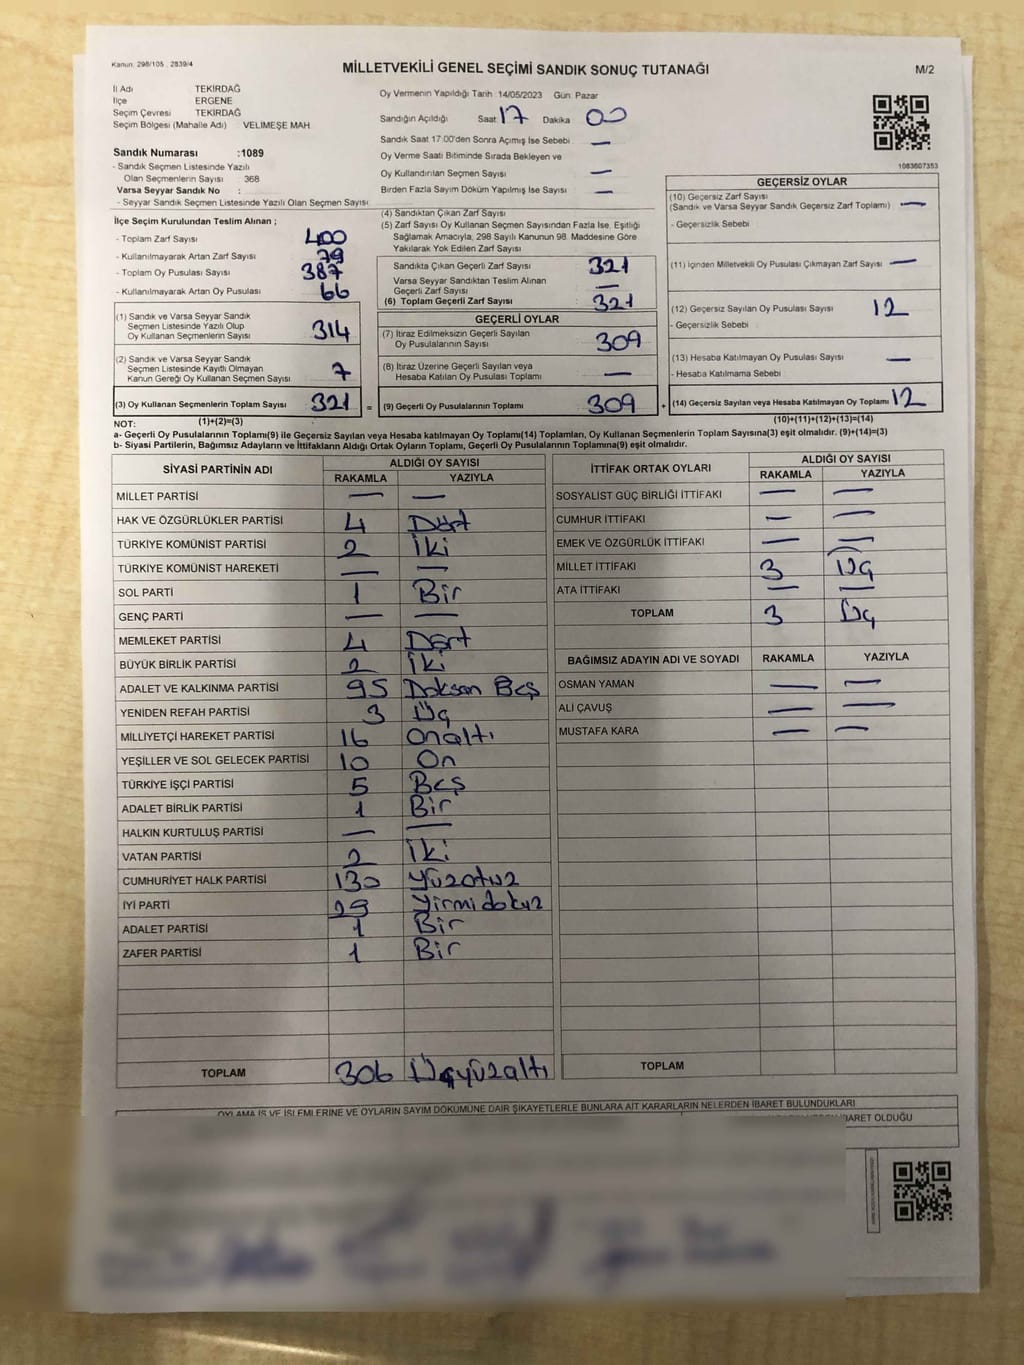 Kanun: 298/105 , 2839/4
MİLLETVEKİLİ GENEL SEÇİMİ SANDIK SONUÇ TUTANAĞI
M/2
İl Adı TEKİRDAĞ
İlçe ERGENE
Seçim Çevresi TEKİRDAĞ
Seçim Bölgesi (Mahalle Adı) VELİMEŞE MAH
Sandık Numarası :1089
- Sandık Seçmen Listesinde Yazılı
Olan Seçmenlerin Sayısı : 368
Varsa Seyyar Sandık No :
- Seyyar Sandık Seçmen Listesinde Yazılı Olan Seçmen Sayısı
Oy Vermenin Yapıldığı Tarih :14/05/2023 Gün: Pazar
Sandığın Açıldığı Saat 17 Dakika 00
Sandık Saat 17:00'den Sonra Açımış İse Sebebi —
Oy Verme Saati Bitiminde Sırada Bekleyen ve
Oy Kullandırılan Seçmen Sayısı —
Birden Fazla Sayım Döküm Yapılmış İse Sayısı —
1083607353
İlçe Seçim Kurulundan Teslim Alınan ;
- Toplam Zarf Sayısı 400
- Kullanılmayarak Artan Zarf Sayısı 79
- Toplam Oy Pusulası Sayısı 387
- Kullanılmayarak Artan Oy Pusulası 66
(1) Sandık ve Varsa Seyyar Sandık
Seçmen Listesinde Yazılı Olup
Oy Kullanan Seçmenlerin Sayısı 314
(2) Sandık ve Varsa Seyyar Sandık
Seçmen Listesinde Kayıtlı Olmayan
Kanun Gereği Oy Kullanan Seçmen Sayısı 7
(3) Oy Kullanan Seçmenlerin Toplam Sayısı 321 =
(1)+(2)=(3)
(4) Sandıktan Çıkan Zarf Sayısı
(5) Zarf Sayısı Oy Kullanan Seçmen Sayısından Fazla İse, Eşitliği
Sağlamak Amacıyla; 298 Sayılı Kanunun 98. Maddesine Göre
Yakılarak Yok Edilen Zarf Sayısı
Sandıkta Çıkan Geçerli Zarf Sayısı 321
Varsa Seyyar Sandıktan Teslim Alınan
Geçerli Zarf Sayısı —
(6) Toplam Geçerli Zarf Sayısı 321
GEÇERLİ OYLAR
(7) İtiraz Edilmeksizin Geçerli Sayılan
Oy Pusulalarının Sayısı 309
(8) İtiraz Üzerine Geçerli Sayılan veya
Hesaba Katılan Oy Pusulası Toplamı —
(9) Geçerli Oy Pusulalarının Toplamı 309 +
GEÇERSİZ OYLAR
(10) Geçersiz Zarf Sayısı
(Sandık ve Varsa Seyyar Sandık Geçersiz Zarf Toplamı) —
- Geçersizlik Sebebi
(11) İçinden Milletvekili Oy Pusulası Çıkmayan Zarf Sayısı —
(12) Geçersiz Sayılan Oy Pusulası Sayısı 12
- Geçersizlik Sebebi
(13) Hesaba Katılmayan Oy Pusulası Sayısı —
- Hesaba Katılmama Sebebi
(14) Geçersiz Sayılan veya Hesaba Katılmayan Oy Toplamı 12
(10)+(11)+(12)+(13)=(14)
NOT:
a- Geçerli Oy Pusulalarının Toplamı(9) ile Geçersiz Sayılan veya Hesaba katılmayan Oy Toplamı(14) Toplamları, Oy Kullanan Seçmenlerin Toplam Sayısına(3) eşit olmalıdır. (9)+(14)=(3)
b- Siyasi Partilerin, Bağımsız Adayların ve İttifakların Aldığı Ortak Oyların Toplamı, Geçerli Oy Pusulalarının Toplamına(9) eşit olmalıdır.
SİYASİ PARTİNİN ADI ALDIĞI OY SAYISI
RAKAMLA YAZIYLA
MİLLET PARTİSİ — —
HAK VE ÖZGÜRLÜKLER PARTİSİ 4 Dört
TÜRKİYE KOMÜNİST PARTİSİ 2 İki
TÜRKİYE KOMÜNİST HAREKETİ — —
SOL PARTİ 1 Bir
GENÇ PARTİ — —
MEMLEKET PARTİSİ 4 Dört
BÜYÜK BİRLİK PARTİSİ 2 İki
ADALET VE KALKINMA PARTİSİ 95 Doksan Beş
YENİDEN REFAH PARTİSİ 3 Üç
MİLLİYETÇİ HAREKET PARTİSİ 16 Onaltı
YEŞİLLER VE SOL GELECEK PARTİSİ 10 On
TÜRKİYE İŞÇİ PARTİSİ 5 Beş
ADALET BİRLİK PARTİSİ 1 Bir
HALKIN KURTULUŞ PARTİSİ — —
VATAN PARTİSİ 2 İki
CUMHURİYET HALK PARTİSİ 130 Yüzotuz
İYİ PARTİ 29 Yirmi dokuz
ADALET PARTİSİ 1 Bir
ZAFER PARTİSİ 1 Bir
TOPLAM 306 Üçyüzaltı
İTTİFAK ORTAK OYLARI ALDIĞI OY SAYISI
RAKAMLA YAZIYLA
SOSYALİST GÜÇ BİRLİĞİ İTTİFAKI — —
CUMHUR İTTİFAKI — —
EMEK VE ÖZGÜRLÜK İTTİFAKI — —
MİLLET İTTİFAKI 3 Üç
ATA İTTİFAKI — —
TOPLAM 3 Üç
BAĞIMSIZ ADAYIN ADI VE SOYADI RAKAMLA YAZIYLA
OSMAN YAMAN — —
ALİ ÇAVUŞ — —
MUSTAFA KARA — —
TOPLAM
OYLAMA İŞ VE İŞLEMLERİNE VE OYLARIN SAYIM DÖKÜMÜNE DAİR ŞİKAYETLERLE BUNLARA AİT KARARLARIN NELERDEN İBARET BULUNDUKLARI
İBARET OLDUĞU